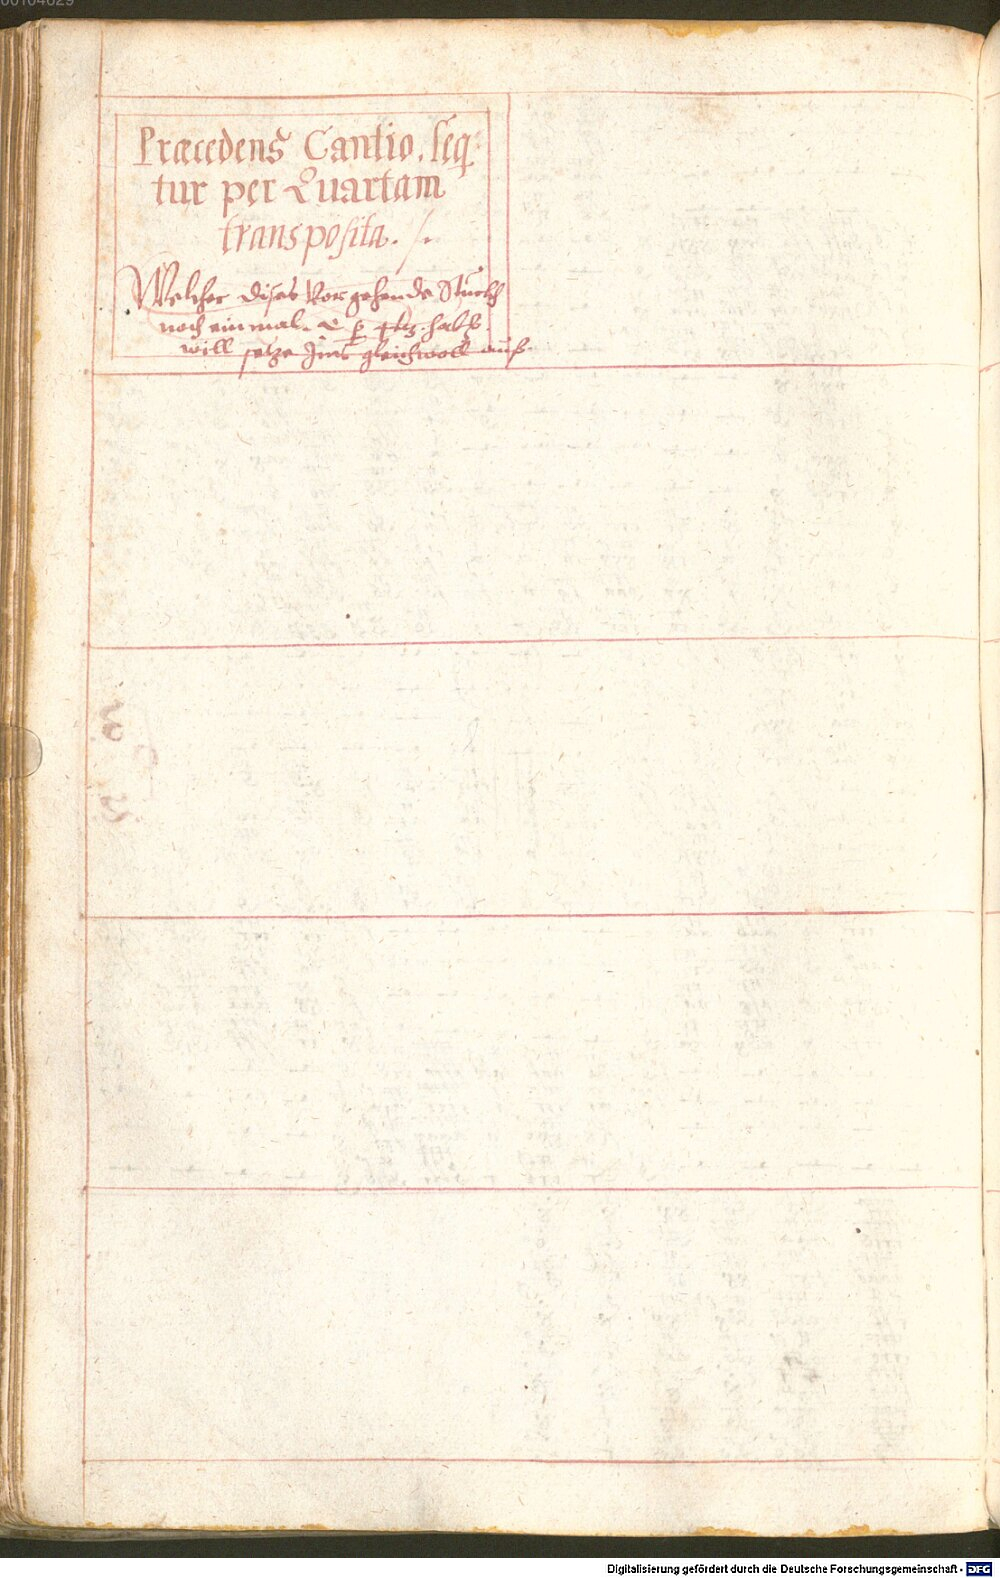 00104629
Præcedens Cantio. seq̃
tur per Quartam
transposita. /.
Welcher dises Vorgehende Stuckh
noch ein mal. habẽ
will setze Jms gleichwoll auß.
Digitalisierung gefördert durch die Deutsche Forschungsgemeinschaft - DFG